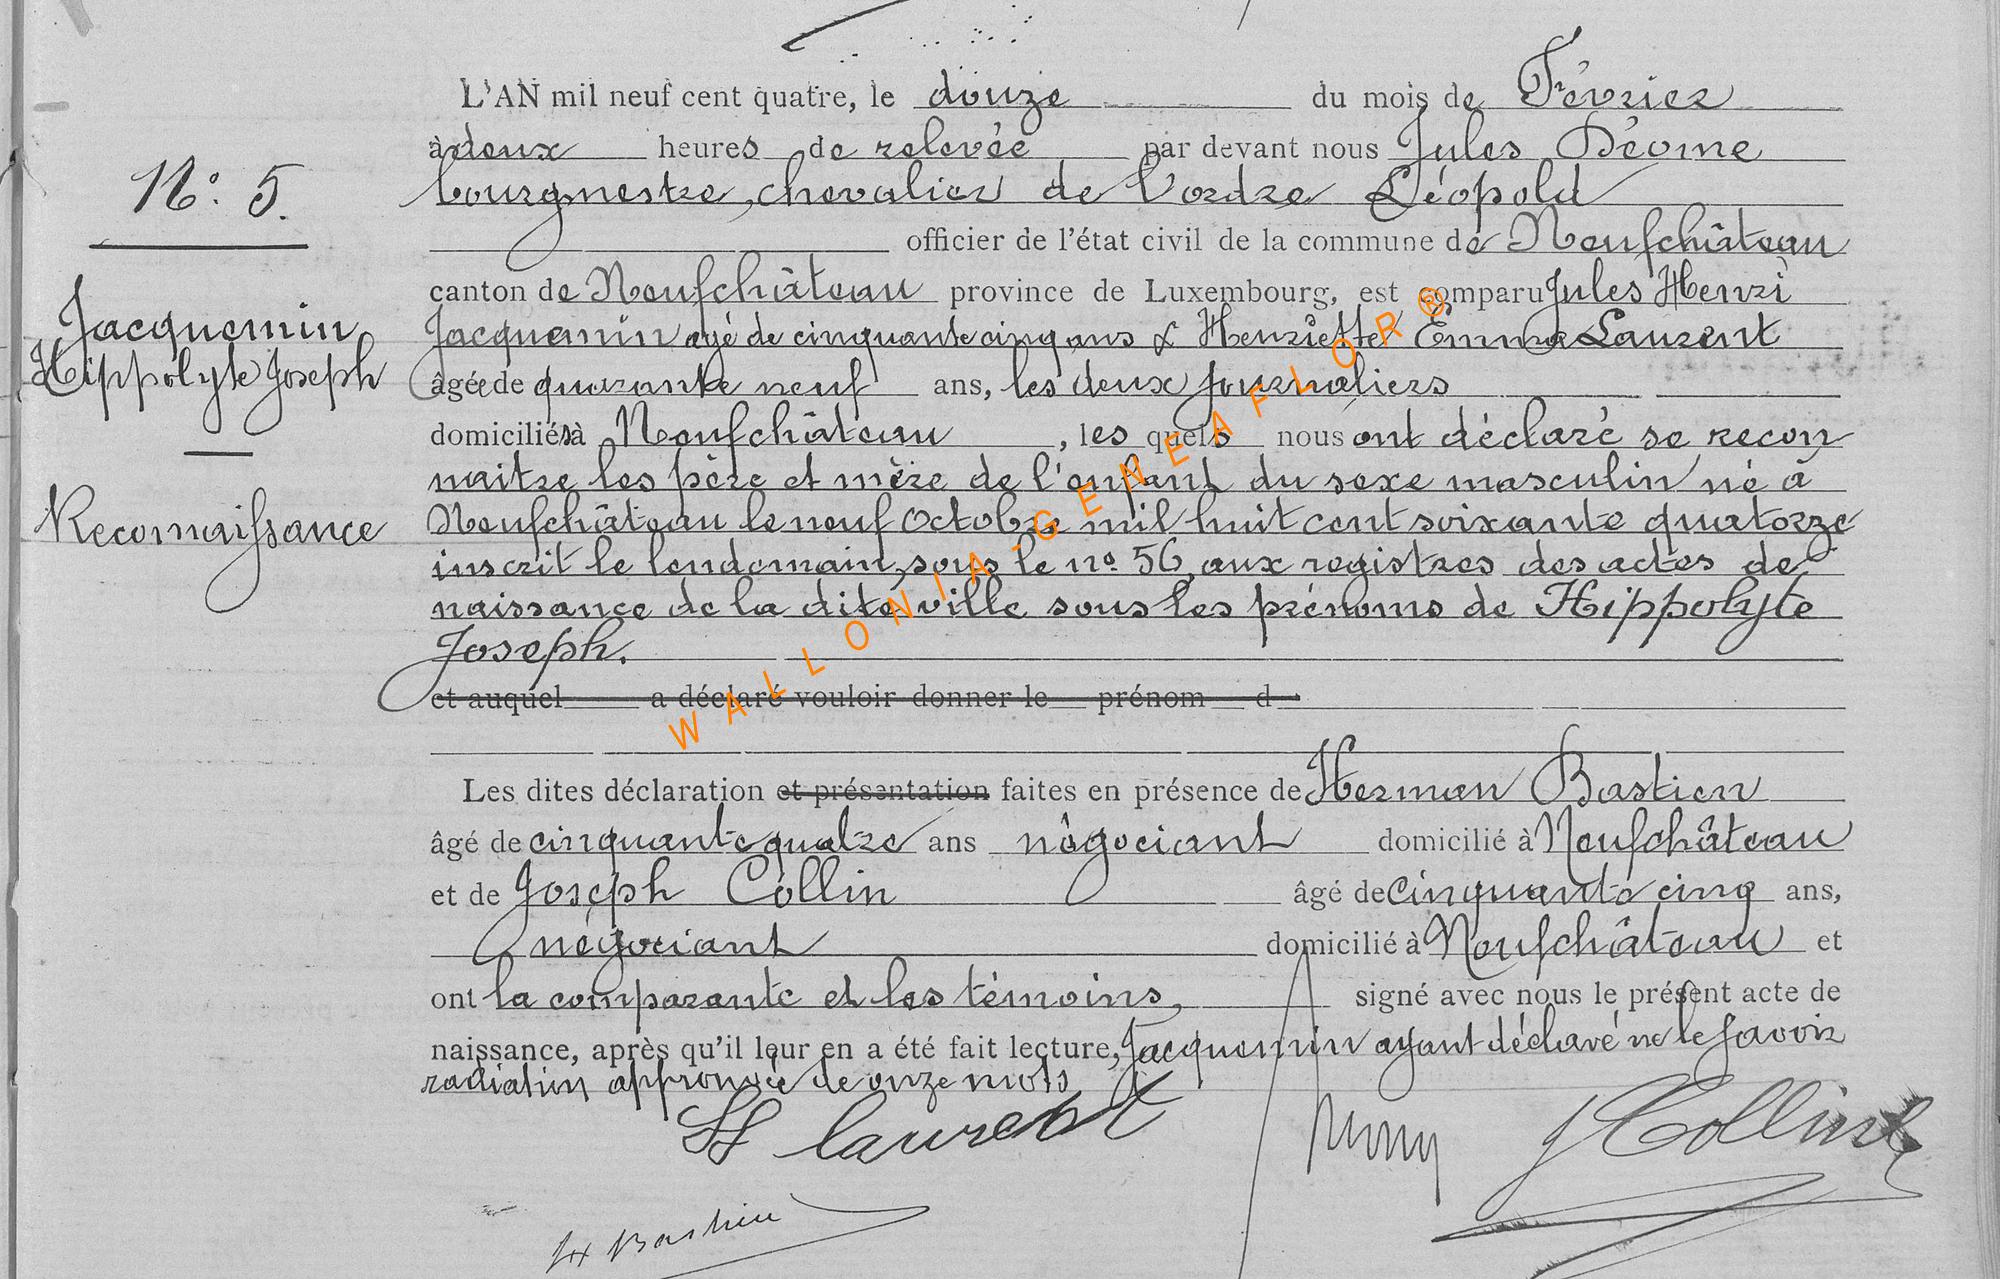 L'AN mil neuf cent quatre, le douze du mois de Février
à deux heures de relevée par devant nous Jules Déome
bourgmestre, chevalier de l'ordre Léopold
N° 5.
officier de l'état civil de la commune de Neufchâteau
canton de Neufchâteau province de Luxembourg, est comparu Jules Henri
Jacquemin
Jacquemin agé de cinquante cinq ans & Henriette Emma Laurent
Hippolyte Joseph
âgée de quarante neuf ans, les deux journaliers
domiciliés à Neufchâteau, les quels nous ont déclaré se recon
naitre les père et mère de l'enfant du sexe masculin né à
Reconnaissance
Neufchâteau le neuf Octobre mil huit cent soixante quatorze
inscrit le lendemain, sous le n° 56, aux registres des actes de
naissance de la dite ville sous les prénoms de Hippolyte
Joseph.
et auquel a déclaré vouloir donner le prénom d
WALLONIA-GENEAFLOR®
Les dites déclaration et présentation faites en présence de Herman Bastien
âgé de cinquante quatre ans négociant domicilié à Neufchâteau
et de Joseph Collin âgé de cinquante cinq ans,
négociant domicilié à Neufchâteau et
ont la comparante et les témoins, signé avec nous le présent acte de
naissance, après qu'il leur en a été fait lecture, Jacquemin ayant déclaré ne le savoir
radiation approuvée de onze mots
laurent
J Collin
Bastien